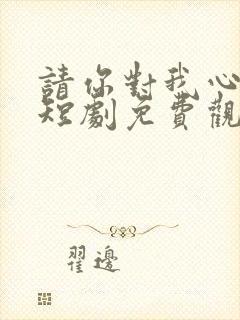 請你對我心
短劇免費觀
翟邊